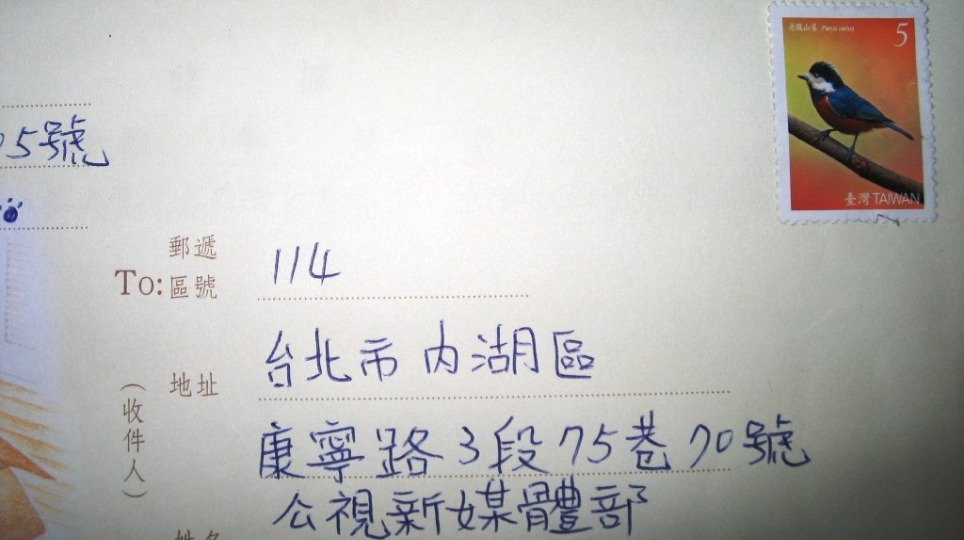 赤腹山雀 Parus varius 5
臺灣 TAIWAN
5號
郵遞
To: 區號 114
台北市內湖區
地址
(收件人)
康寧路3段75巷70號
公視新媒體部
姓名